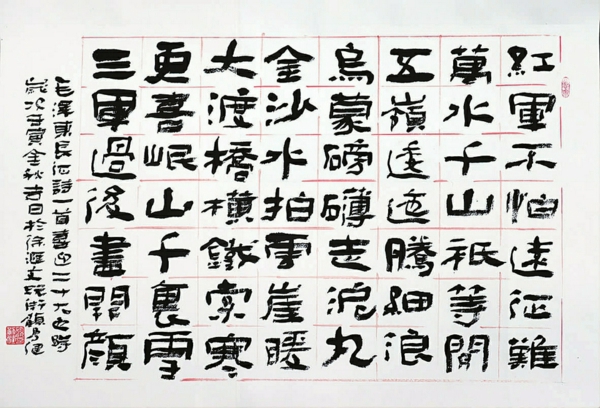 紅軍不怕遠征難
萬水千山祇等閒
五嶺逶迤騰細浪
烏蒙磅礴走泥丸
金沙水拍雲崖暖
大渡橋橫鐵索寒
更喜岷山千裏雪
三軍過後盡開顏
毛澤東長征詩一首喜迎二十大之時
歲次壬寅金秋吉日於徐滙